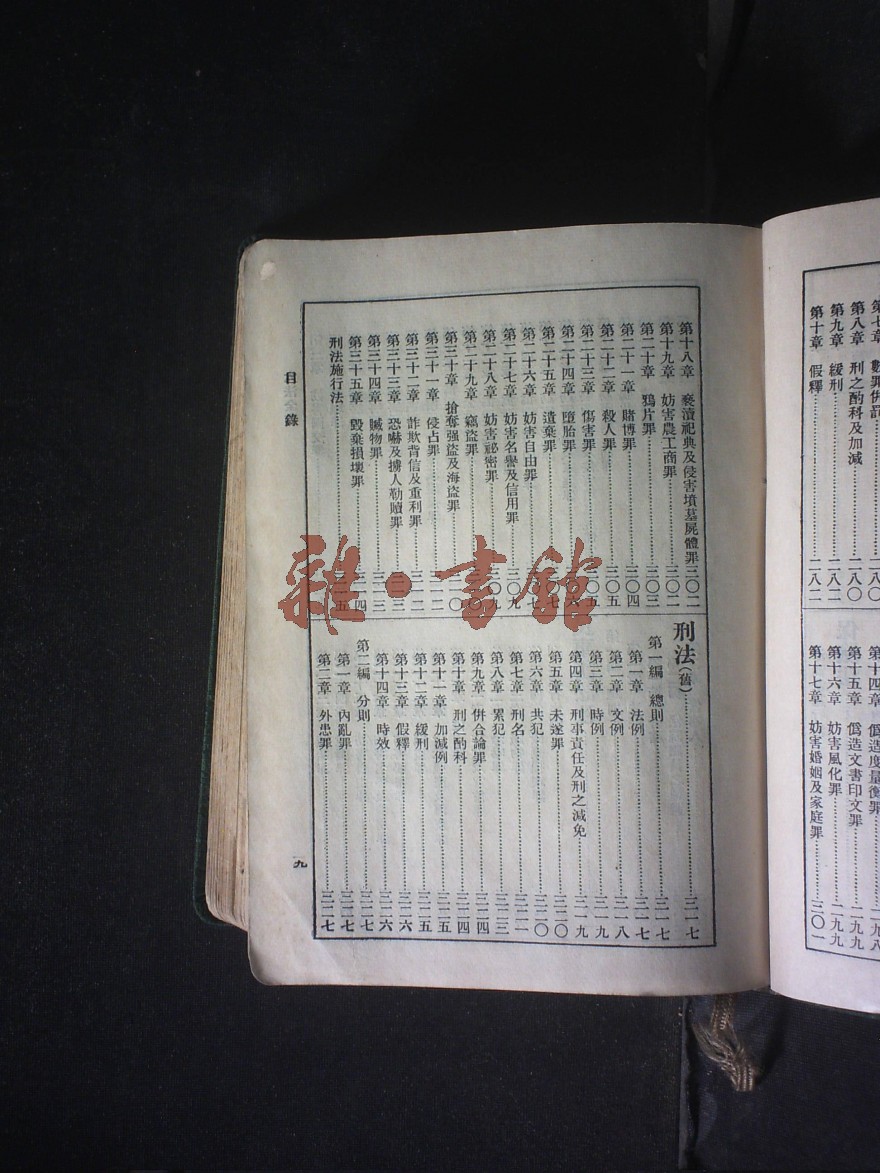 第七章 數罪併罰……一八〇
第八章 刑之酌科及加減……一八〇
第九章 緩刑……一八二
第十章 假釋……一八二
第十四章 僞造度量衡罪……一九八
第十五章 僞造文書印文罪……一九九
第十六章 妨害風化罪……一九九
第十七章 妨害婚姻及家庭罪……二〇一
第十八章 褻瀆祀典及侵害墳墓屍體罪 二〇二
第十九章 妨害農工商罪……二〇二
第二十章 鴉片罪……二〇三
第二十一章 賭博罪……二〇四
第二十二章 殺人罪……二〇五
第二十三章 傷害罪……二〇五
第二十四章 墮胎罪……
第二十五章 遺棄罪……
第二十六章 妨害自由罪……
第二十七章 妨害名譽及信用罪……二〇九
第二十八章 妨害祕密罪……
第二十九章 竊盜罪……
第三十章 搶奪强盜及海盜罪……
第三十一章 侵占罪……二一二
第三十二章 詐欺背信及重利罪……二一二
第三十三章 恐嚇及擄人勒贖罪……
第三十四章 贓物罪……
第三十五章 毀棄損壞罪……
刑法施行法……
刑法（舊）……二一七
第一編 總則……二一七
第一章 法例……二一七
第二章 文例……二一八
第三章 時例……二一九
第四章 刑事責任及刑之減免……二一九
第五章 未遂罪……二二〇
第六章 共犯……二二〇
第七章 刑名……二二一
第八章 累犯……二二三
第九章 併合論罪……二二四
第十章 刑之酌科……二二四
第十一章 加減例……二二五
第十二章 緩刑……二二五
第十三章 假釋……二二六
第十四章 時效……二二六
第二編 分則……二二七
第一章 內亂罪……二二七
第二章 外患罪……二二七
目錄
九
雜·書館